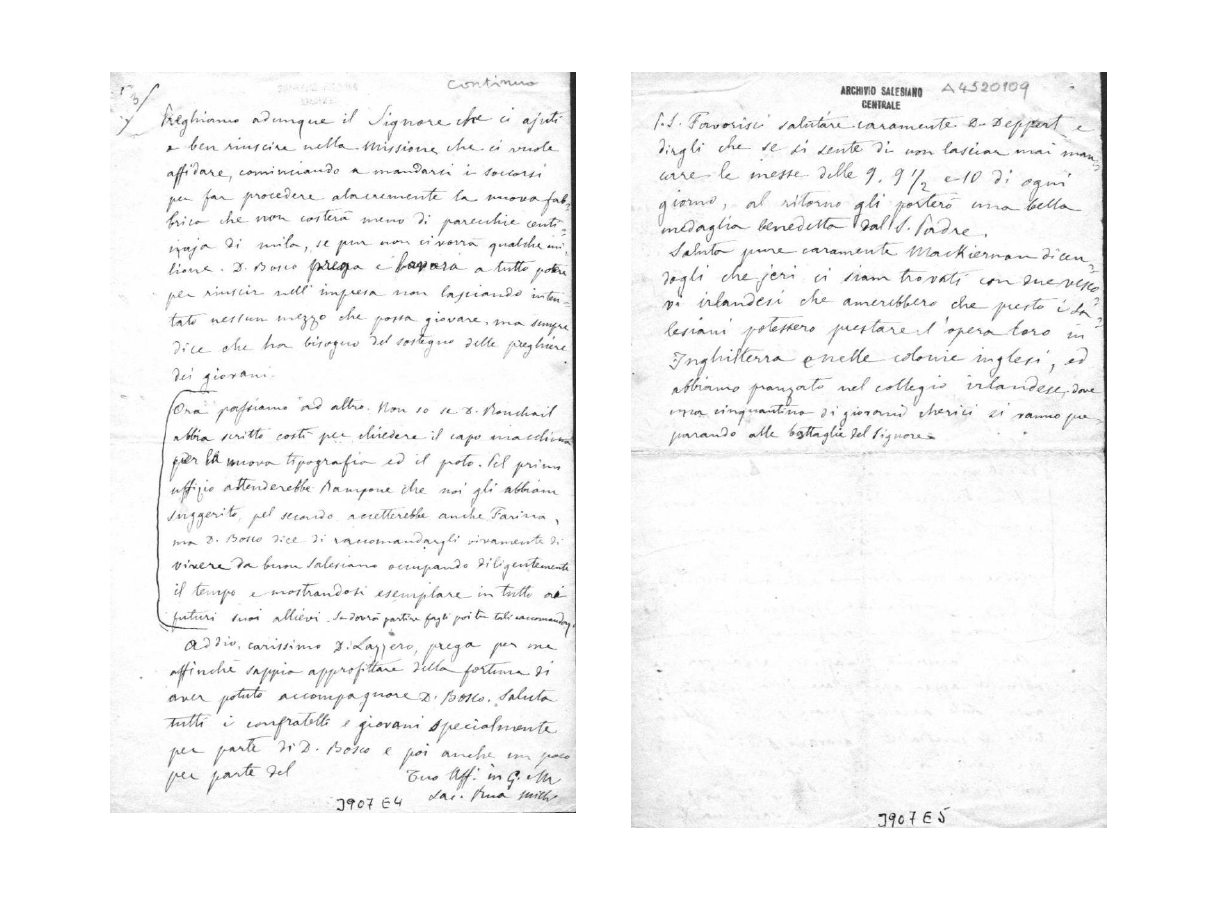 3/
continua
Preghiamo adunque il Signore che ci ajuti
a ben riuscire nella missione che ci vuole
affidare, cominciando a mandarci i soccorsi
per far procedere alacremente la nuova fab-
brica che non costerà meno di parecchie cent-
inaja di mila, se pur non ci vorrà qualche mi-
lione. D. Bosco prega e lavora a tutto potere
per riuscir nell'impresa non lasciando inten-
tato nessun mezzo che possa giovare, ma sempre
dice che ha bisogno del sostegno delle preghiere
dei giovani.
Ora passiamo ad altro. Non so se D. Ronchail
abbia scritto costì per chiedere il capo macchina
per la nuova tipografia ed il proto. Pel primo
uffizio attenderebbe Rampone che noi gli abbiam
suggerito, pel secondo accetterebbe anche Farina,
ma D. Bosco dice di raccomandargli vivamente di
vivere da buon Salesiano occupando diligentemente
il tempo e mostrandosi esemplare in tutto ai
futuri suoi allievi. Se dovrà partire fagli poi tu tali raccomandaz.
Addio, carissimo D. Lazzero, prega per me
affinchè sappia approfittare della fortuna di
aver potuto accompagnare D. Bosco. Saluta
tutti i confratelli e giovani specialmente
per parte di D. Bosco e poi anche un poco
per parte del
Tuo Aff. in G. e M
Sac. Rua Mich
J907 E4
ARCHIVIO SALESIANO
CENTRALE
A4520109
P.S. Favorisci salutare caramente D. Deppert e
dirgli che se si sente di non lasciar mai man-
care le messe delle 9. 9 1/2 e 10 di ogni
giorno, al ritorno gli porterò una bella
medaglia benedetta dal S. Padre.
Saluta pure caramente MacKiernan dicen-
dogli che jeri ci siam trovati con due vesco-
vi irlandesi che amerebbero che presto i Sa-
lesiani potessero prestare l'opera loro in
Inghilterra e nelle colonie inglesi, ed
abbiamo pranzato nel collegio irlandese, dove
una cinquantina di giovani chierici si vanno pre-
parando alle battaglie del Signore.
J907 E5